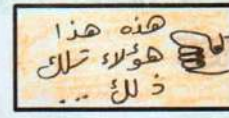 هذه هذا
هؤلاء تلك
ذلك ...